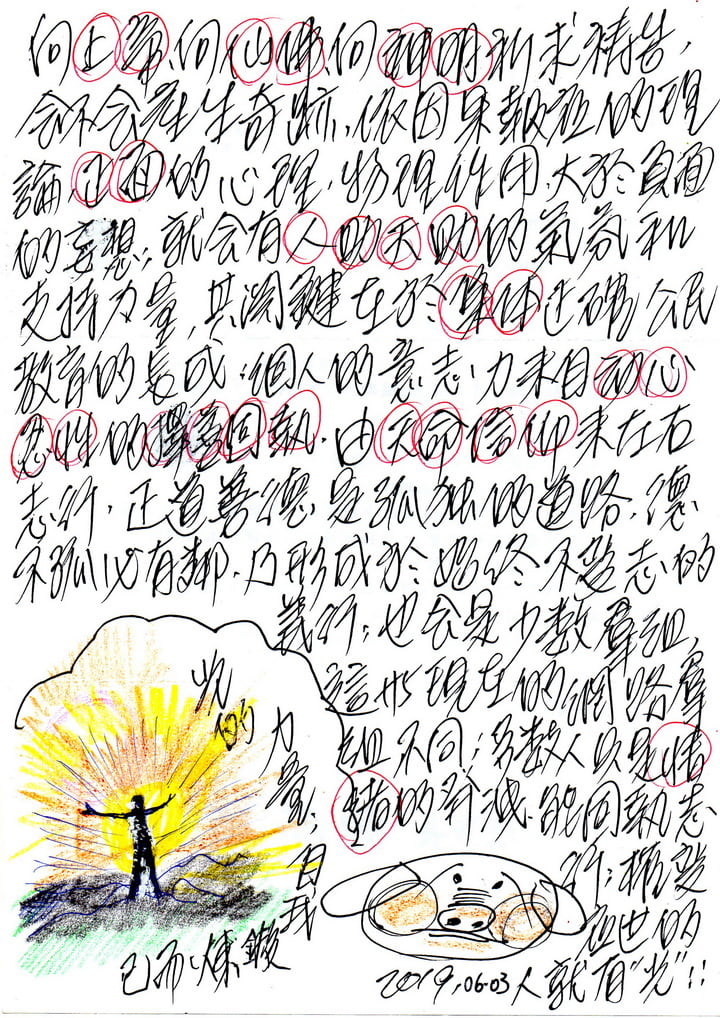 向上帝、向仙佛、向神明祈求禱告，
会不会產生奇跡，依因果報应的理
論，正面的心理，物理作用，大於負面
的妄想，就会有人助天助的氣氛和
支持力量，其関鍵在於集体正確公民
教育的養成，個人的意志力来自动心
忍性的擇善固執，由天命信仰来左右
志行，正道善德，是孤独的道路，德
不孤必有鄰，乃形成於始終不变志的
義行；也会是少数羣組，
這此現在的網路羣
組不同；多数人只是情
緒的 能固執志
行；
世的
人就有"光"!!
光
的
力
量，
自
我
己而煉鍛
2019.06.03